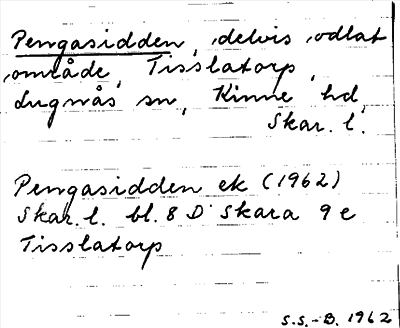 Pengasidden, delvis odlat
område, Tisslatorp,
Lugnås sn, Kinne hd,
Skar. l.
Pengasidden ek (1962)
Skar. l. bl. 8 D Skara 9 e
Tisslatorp
S.S.-B. 1962